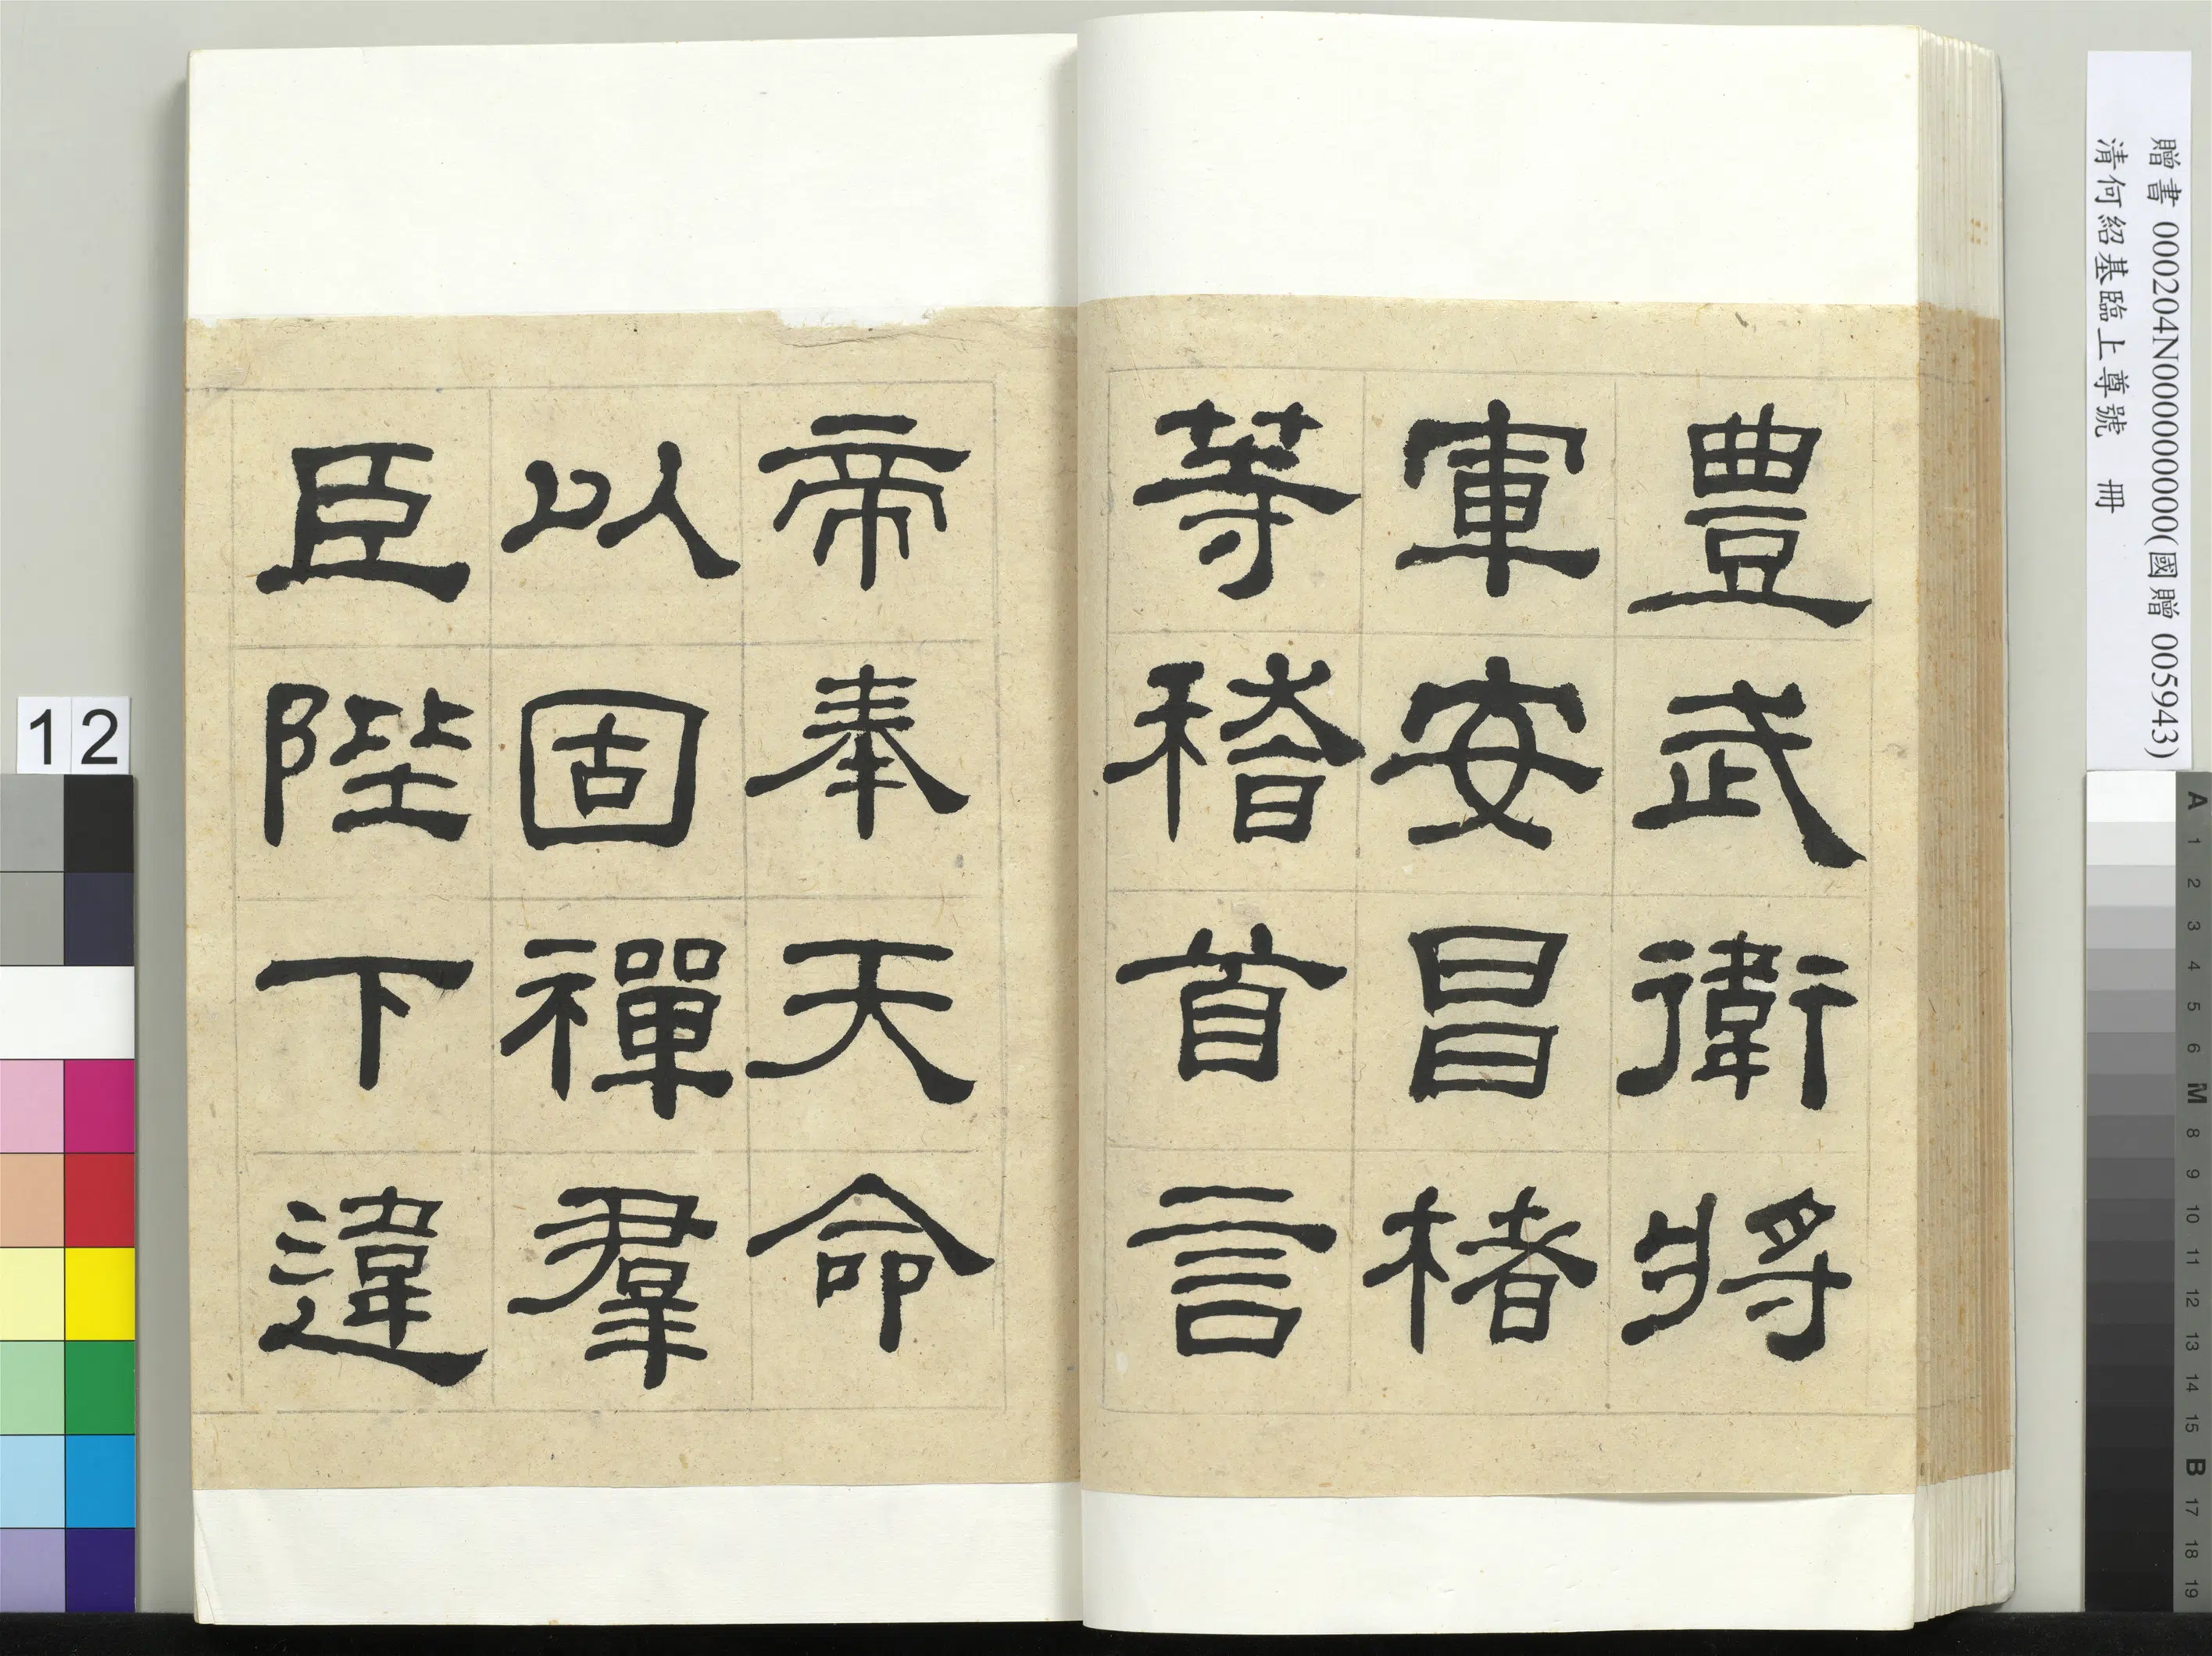 豊武衛將
軍安昌楮
等稽首言
帝奉天命
以固禪羣
臣陛下違
贈書 000204N000000000(國贈 005943)
清何紹基臨上尊號 冊
12
A 1 2 3 4 5 6 M 8 9 10 11 12 13 14 15 B 17 18 19